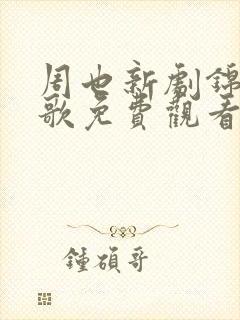 周也新劇錦
歌免費觀看
鍾碩哥